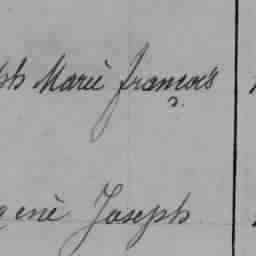 ph Marie françois
gene Joseph